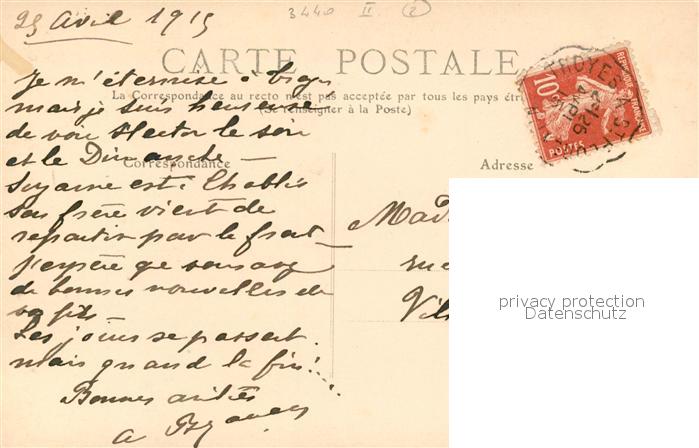 25 Avril 1915
3440 II (2)
CARTE POSTALE
La Correspondance au recto n'est pas acceptée par tous les pays étr
(Se renseigner à la Poste)
Correspondance
Adresse
REPUBLIQUE FRANÇAISE
10
POSTES
TROYES A ST
Je m'éternise à
mais je suis heureuse
de voir Hector le soir
et le Dimanche
Suzanne est à Chablis
Son frère vient de
repartir pour le front
j'espère que vous avez
de bonnes nouvelles de
vos fils
Les jours se passent
mais quand la fin!
Bonnes amitiés
Mad
rue
Vil
privacy protection
Datenschutz